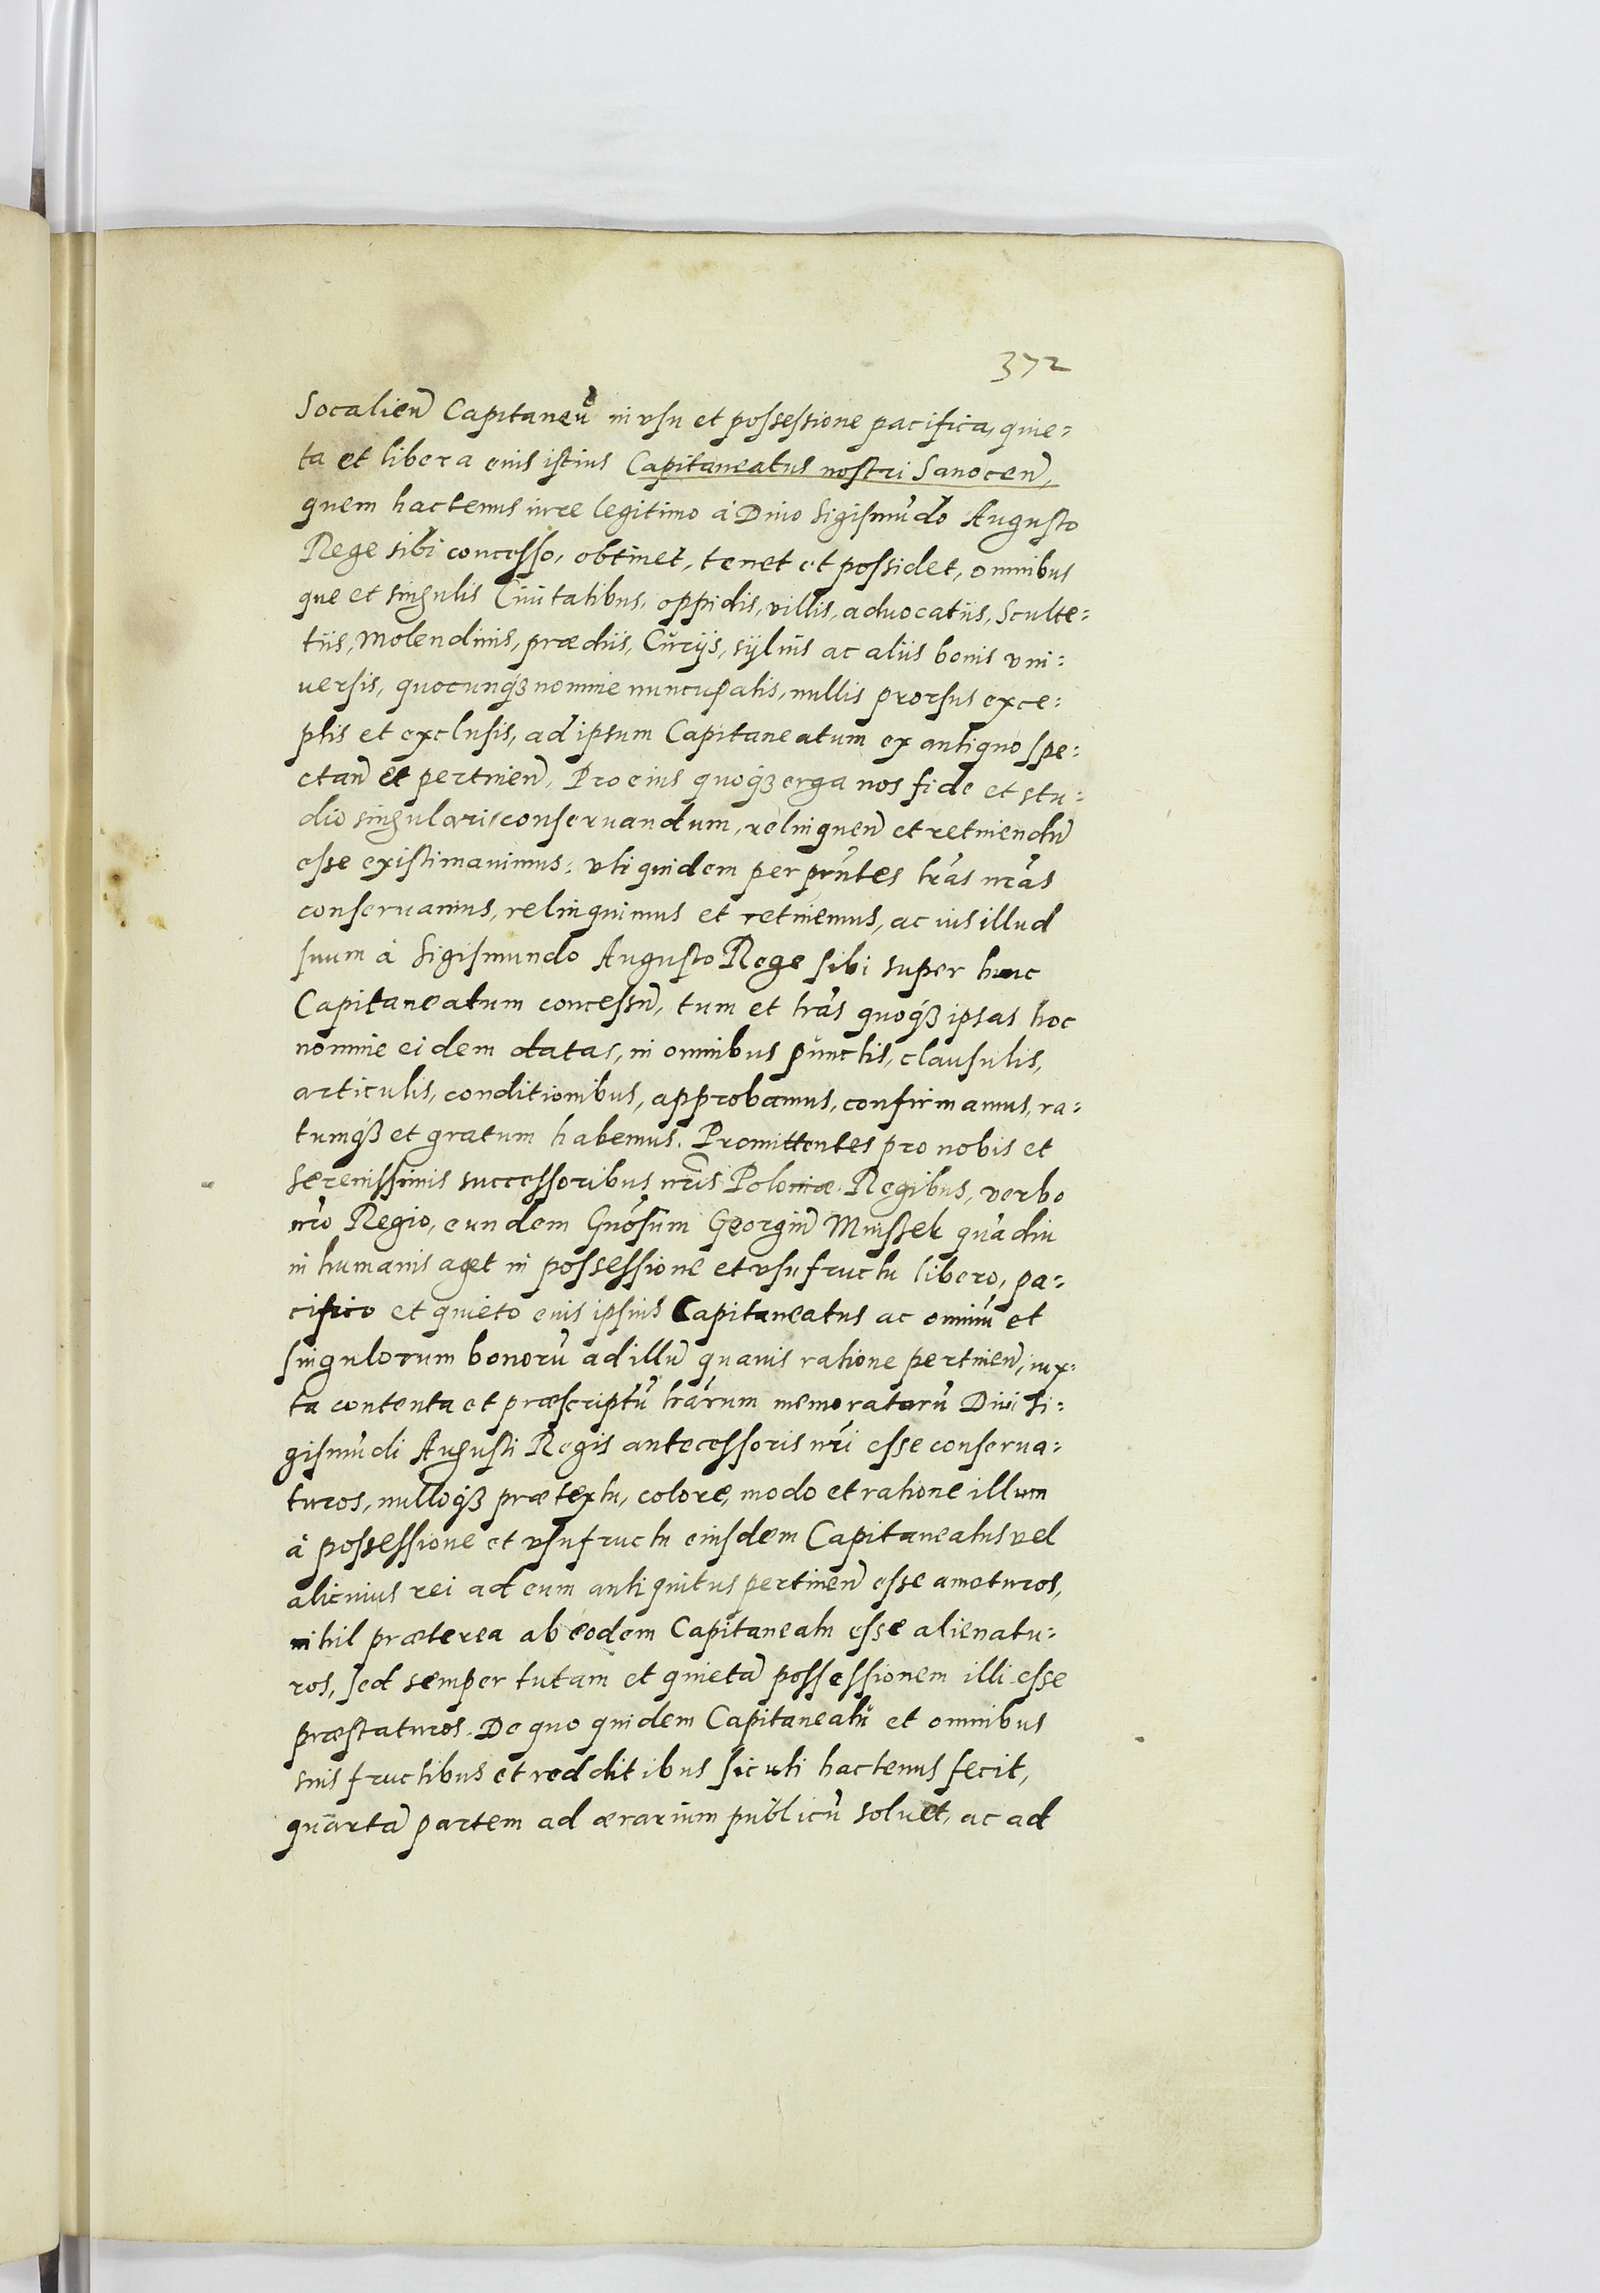 372
Socalieñ Capitaneũ in vsu et possessione pacifica, quie=
ta et libera eius istius Capitaneatus nostri Sanoceñ,
quem hactenus iure legitimo à Diuo Sigismũdo Augusto
Rege sibi concesso, obtinet, tenet et possidet, omnibus
que et singulis Ciuitatibus, oppidis, villis, aduocatiis, Sculte=
tiis, Molendinis, prædiis, Curijs, syluis ac aliis bonis vni=
uersis, quocunqꝫ nomine nuncupatis, nullis prorsus exce=
ptis et exclusis, ad ipsum Capitaneatum ex antiquo spe=
ctañ et pertineñ, Pro eius quoqꝫ erga nos fide et stu=
dio singulari conseruandum, relinqueñ et retinendũ
esse existimauimus: vti quidem per pñtes lr̃as nr̃as
conseruamus, relinquimus et retinemus, ac ius illud
suum à Sigismundo Augusto Rege sibi super hunc
Capitaneatum concessũ, tum et lr̃as quoqꝫ ipsas hoc
nomine eidem datas, in omnibus punctis, clausulis,
articulis, conditionibus, approbamus, confirmamus, ra=
tumqꝫ et gratum habemus. Promittentes pro nobis et
Serenissimis successoribus nr̃is Poloniæ Regibus, verbo
nr̃o Regio, eundem Gñosum Georgiũ Mnissek quãdiu
in humanis aget in possessione et vsufructu libero, pa=
cifico et quieto eius ipsius Capitaneatus ac omniũ et
singulorum bonorũ ad illũ quauis ratione pertineñ, iux=
ta contenta et præscriptũ lr̃arum memoratarũ Diui Si=
gismũdi Augusti Regis antecessoris nr̃i esse conserua=
turos, nulloqꝫ prætextu, colore, modo et ratione illum
à possessione et vsufructu eiusdem Capitaneatus vel
alicuius rei ad eum antiquitus pertineñ esse amoturos,
nihil præterea ab eodem Capitaneatu esse alienatu=
ros, sed semper tutam et quietã possessionem illi esse
præstaturos. De quo quidem Capitaneatu et omnibus
suis fructibus et redditibus sicuti hactenus fecit,
quartã partem ad ærarium publicũ soluet, ac ad